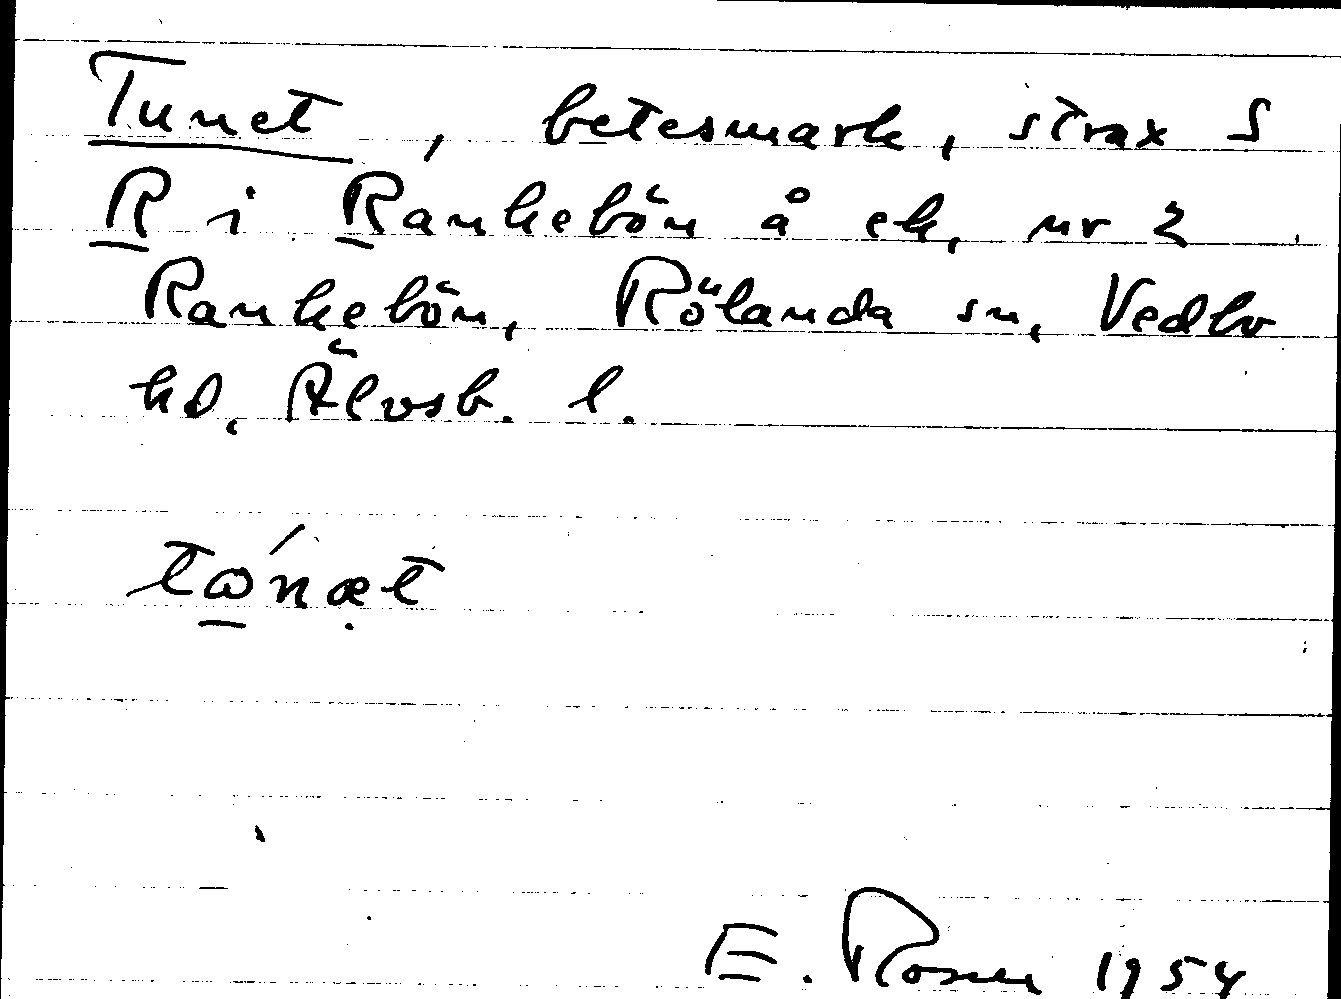 Tunet, betesmark, strax S
R i Rankebön å ek. nr 2
Rankebön, Rölanda sn, Vedbo
hd, Älvsb. l.
tώnæt
E. Rosen 1954